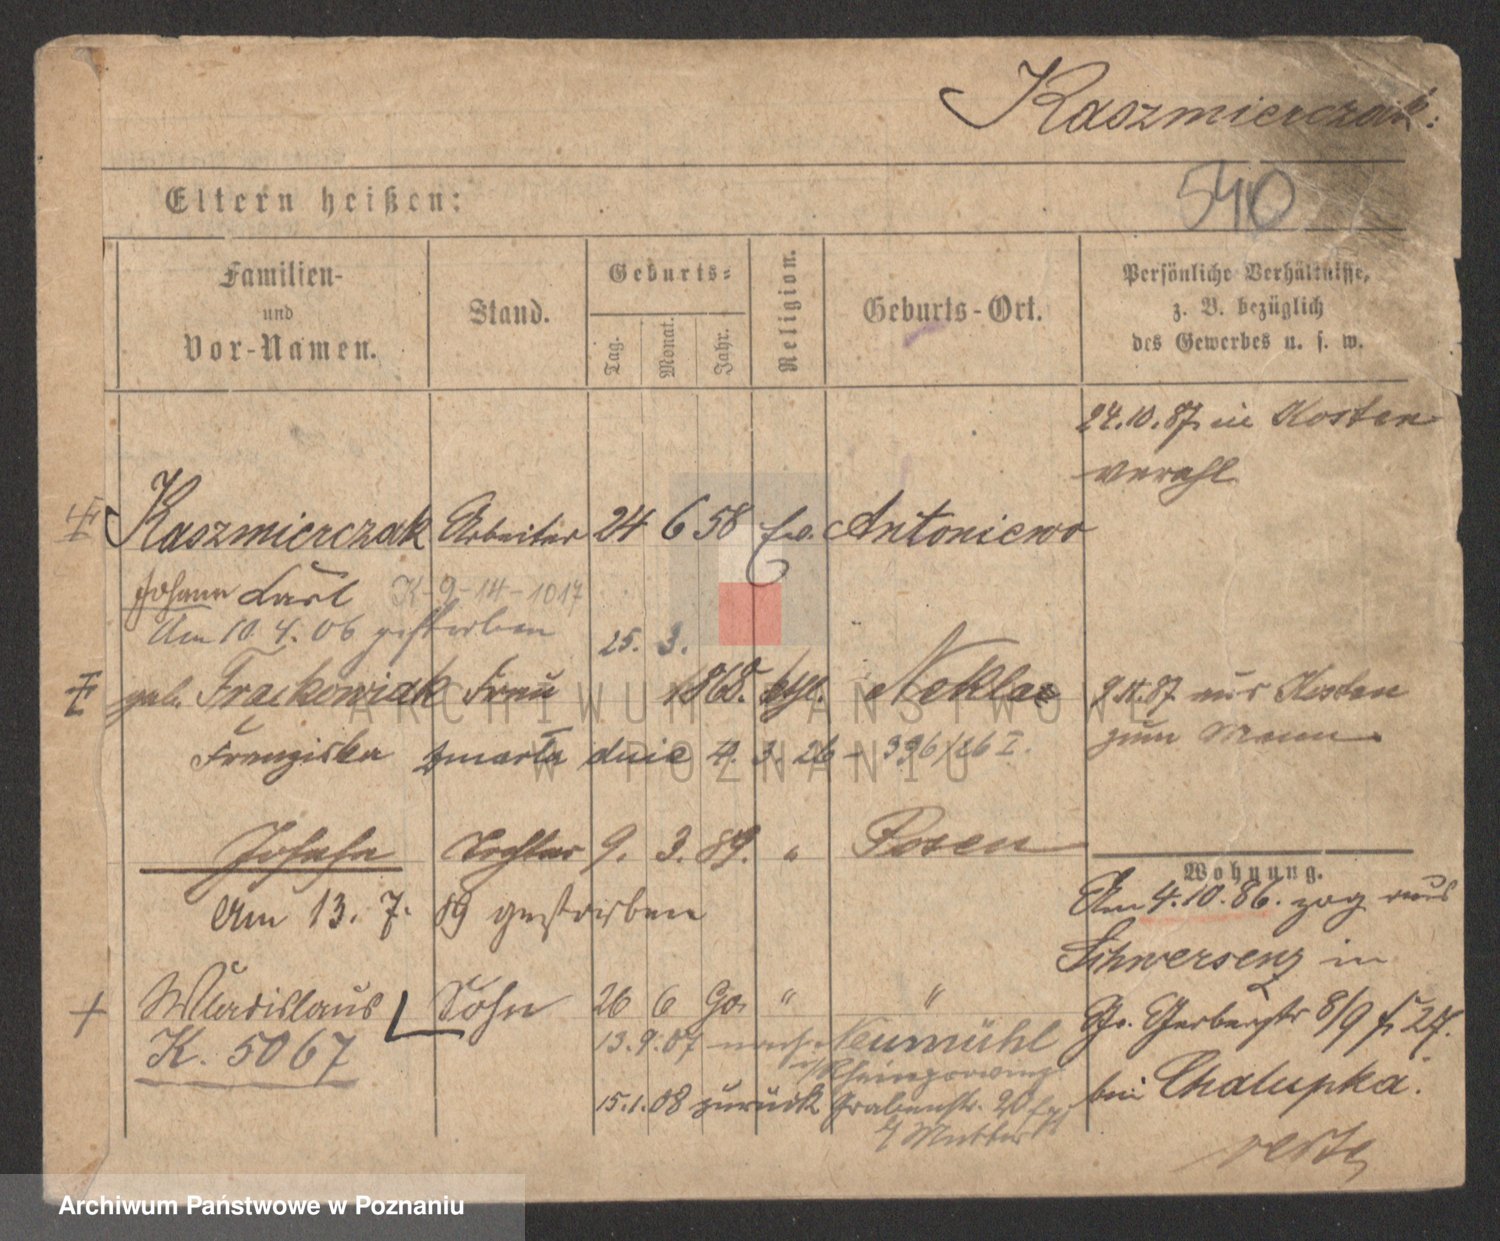 Kaszmierczak.
540
Eltern heißen:
Familien- und Vor-Namen.
Stand.
Geburts-
Tag.
Monat.
Jahr.
Religion.
Geburts-Ort.
Persönliche Verhältnisse,
z. B. bezüglich
des Gewerbes u. s. w.
24.10.87 in Kosten
verehl
I Kaszmierczak Arbeiter 24 6 58 Ev. Antoniewo
Johann Karl K-9-14-1017
Am 10.4.06 gestorben
25. 3.
I geb. Frackowiak Frau 1868. kth. Nekla
9.11.87 aus Kosten
zum Mann
Franziska zmarła dnia 4. 3. 26 - 396/26 I.
Josefa Tochter 9. 3. 89. " Posen
Am 13. 7. 89 gestorben
Wohnung.
Am 4.10.86. zog aus
Schwersenz in
Gr. Gerberstr 8/9 f. 27.
bei Chalupka.
+ Wladislaus Sohn 26 6 90. " "
K. 5067
13.9.07 nach Neumühl
Rheinprovinz
15.1.08 zurück Grabenstr. 20
Mutter
verte
ARCHIWUM PAŃSTWOWE
W POZNANIU
Archiwum Państwowe w Poznaniu